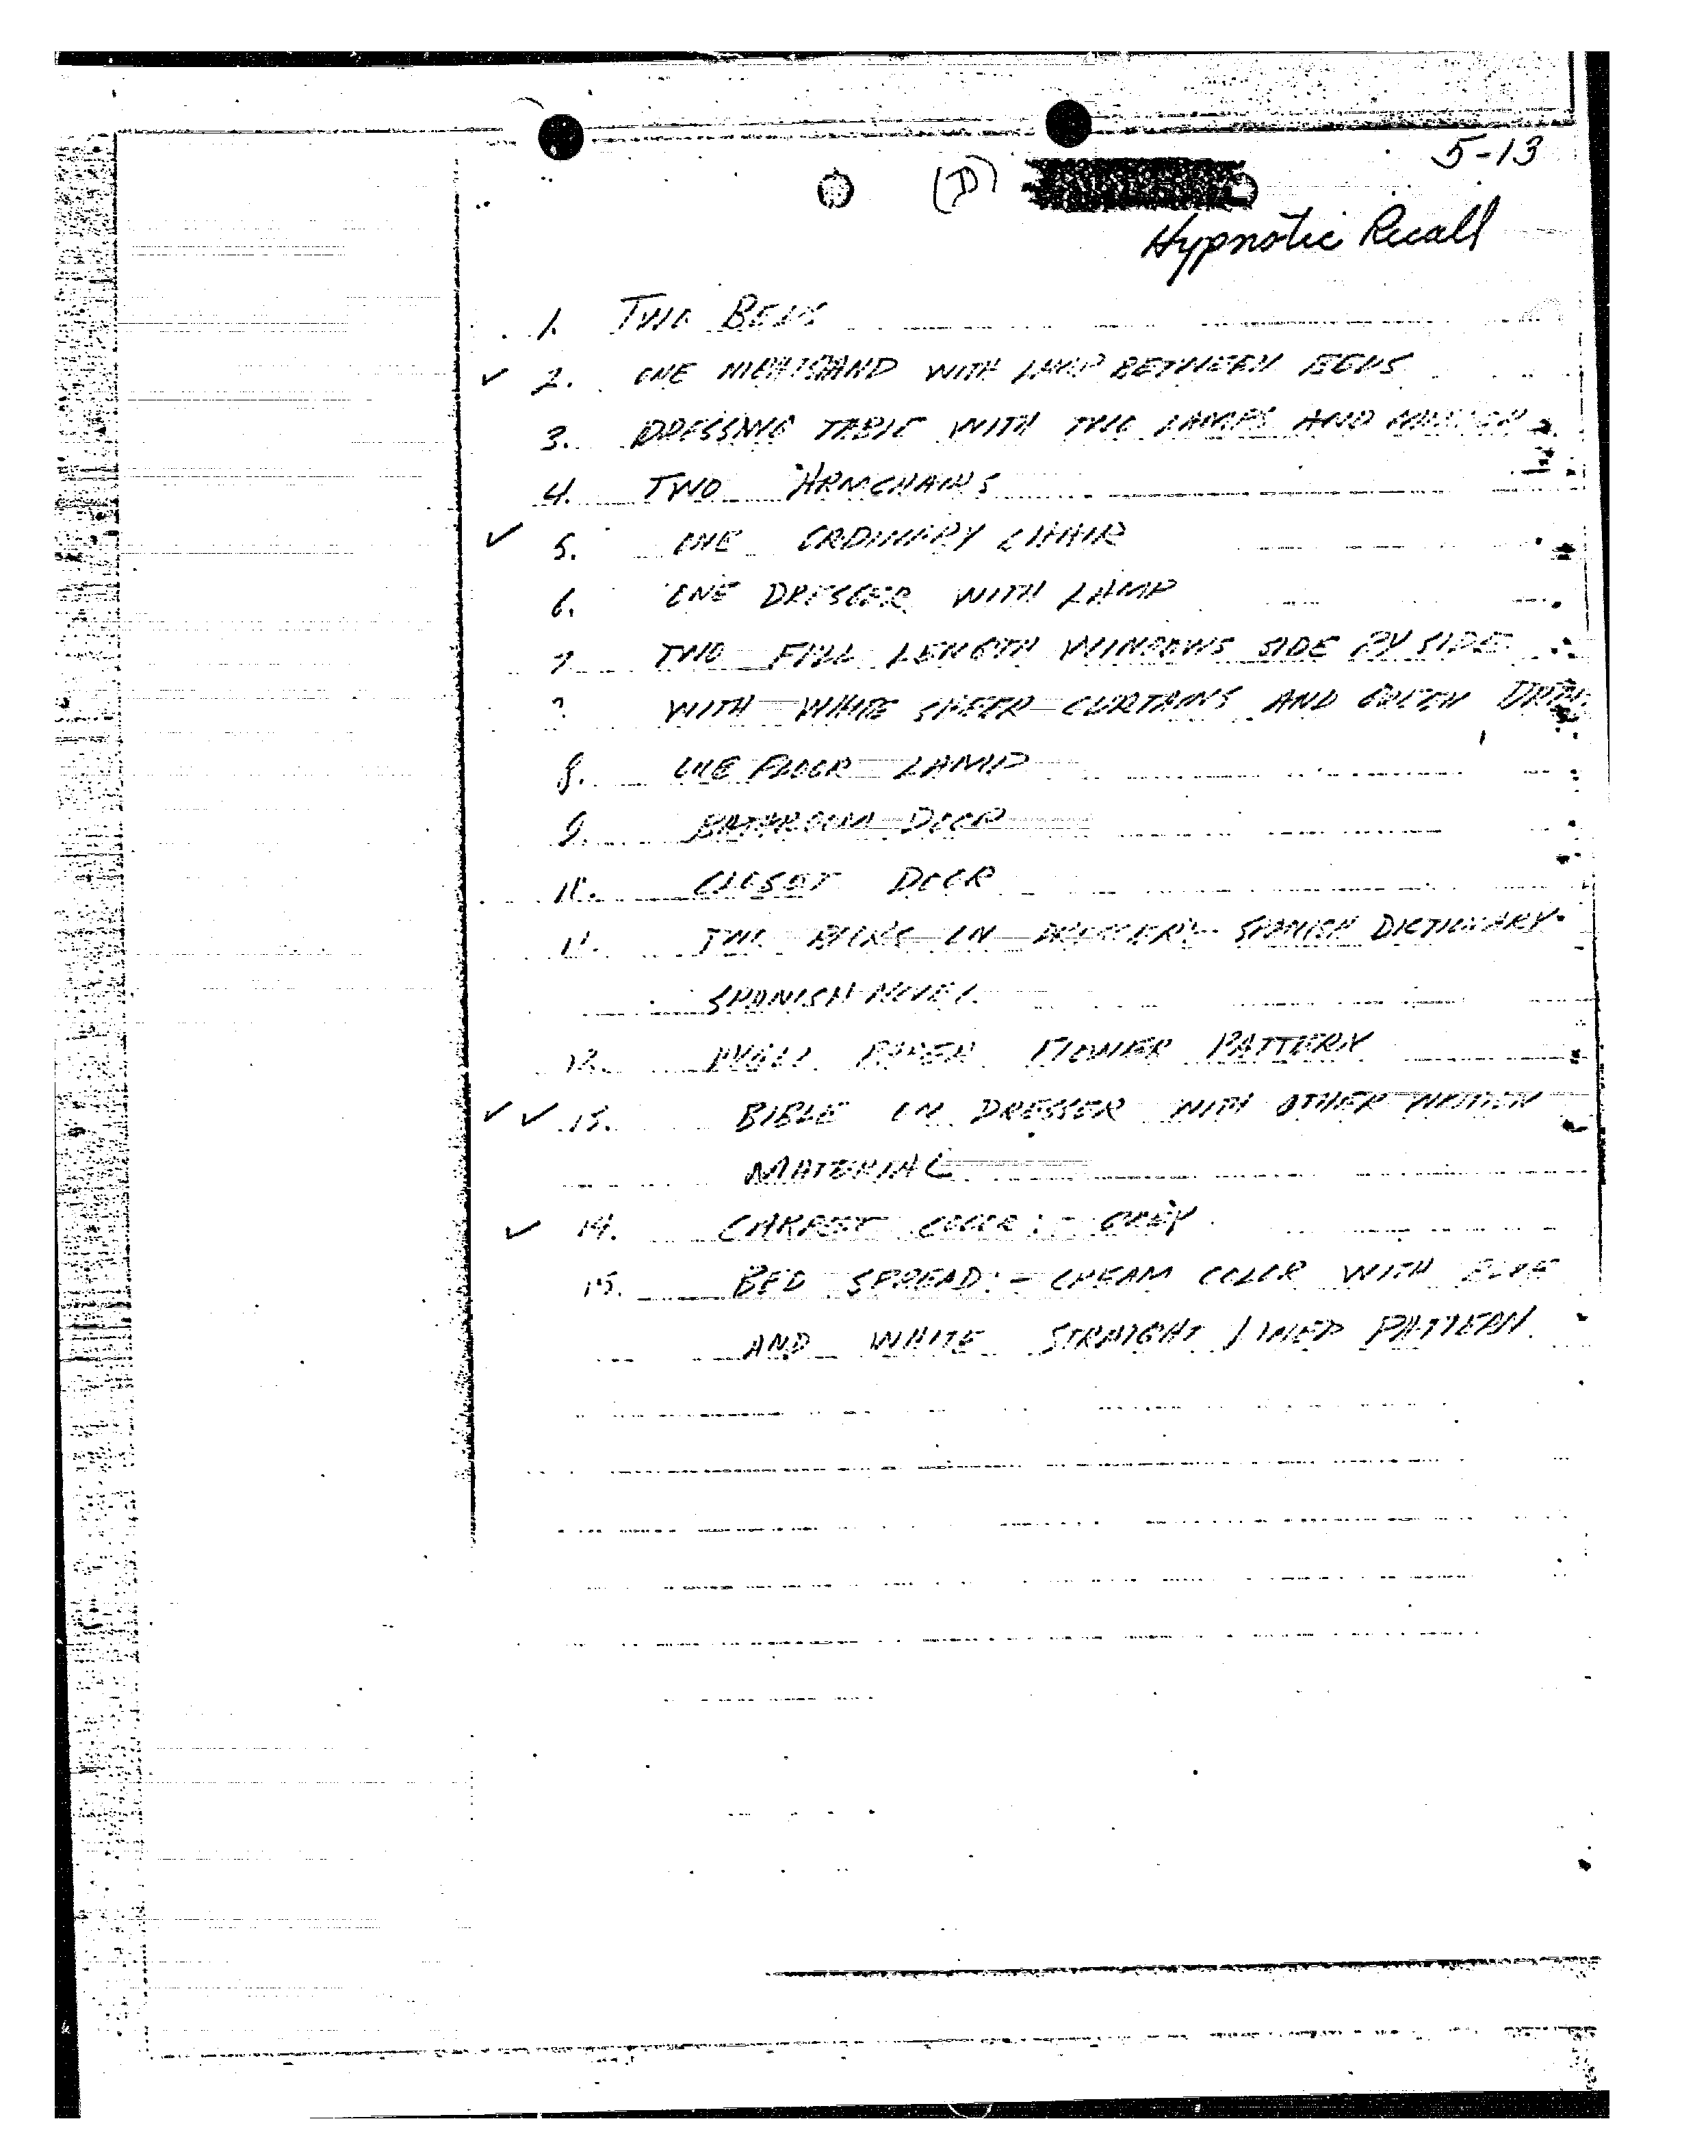 5-13
(D)
Hypnotic Recall
1. TWO BEDS
✓ 2. ONE NIGHTSTAND WITH LAMP BETWEEN BEDS
3. DRESSING TABLE WITH TWO LAMPS AND MIRROR
4. TWO ARMCHAIRS
✓ 5. ONE ORDINARY CHAIR
6. ONE DRESSER WITH LAMP
7. TWO FULL LENGTH WINDOWS SIDE BY SIDE
WITH WHITE SHEER CURTAINS AND GREEN
8. ONE FLOOR LAMP
9. BATHROOM DOOR
10. CLOSET DOOR
11. TWO BOOKS ON DRESSER:- SPANISH DICTIONARY
SPANISH NOVEL
12. WALL PAPER FLOWER PATTERN
✓ ✓ 13. BIBLE ON DRESSER WITH OTHER WRITTEN
MATERIAL
✓ 14. CARPET COLOR:- GREY
15. BED SPREAD:- CREAM COLOR WITH BLUE
AND WHITE STRAIGHT LINED PATTERN